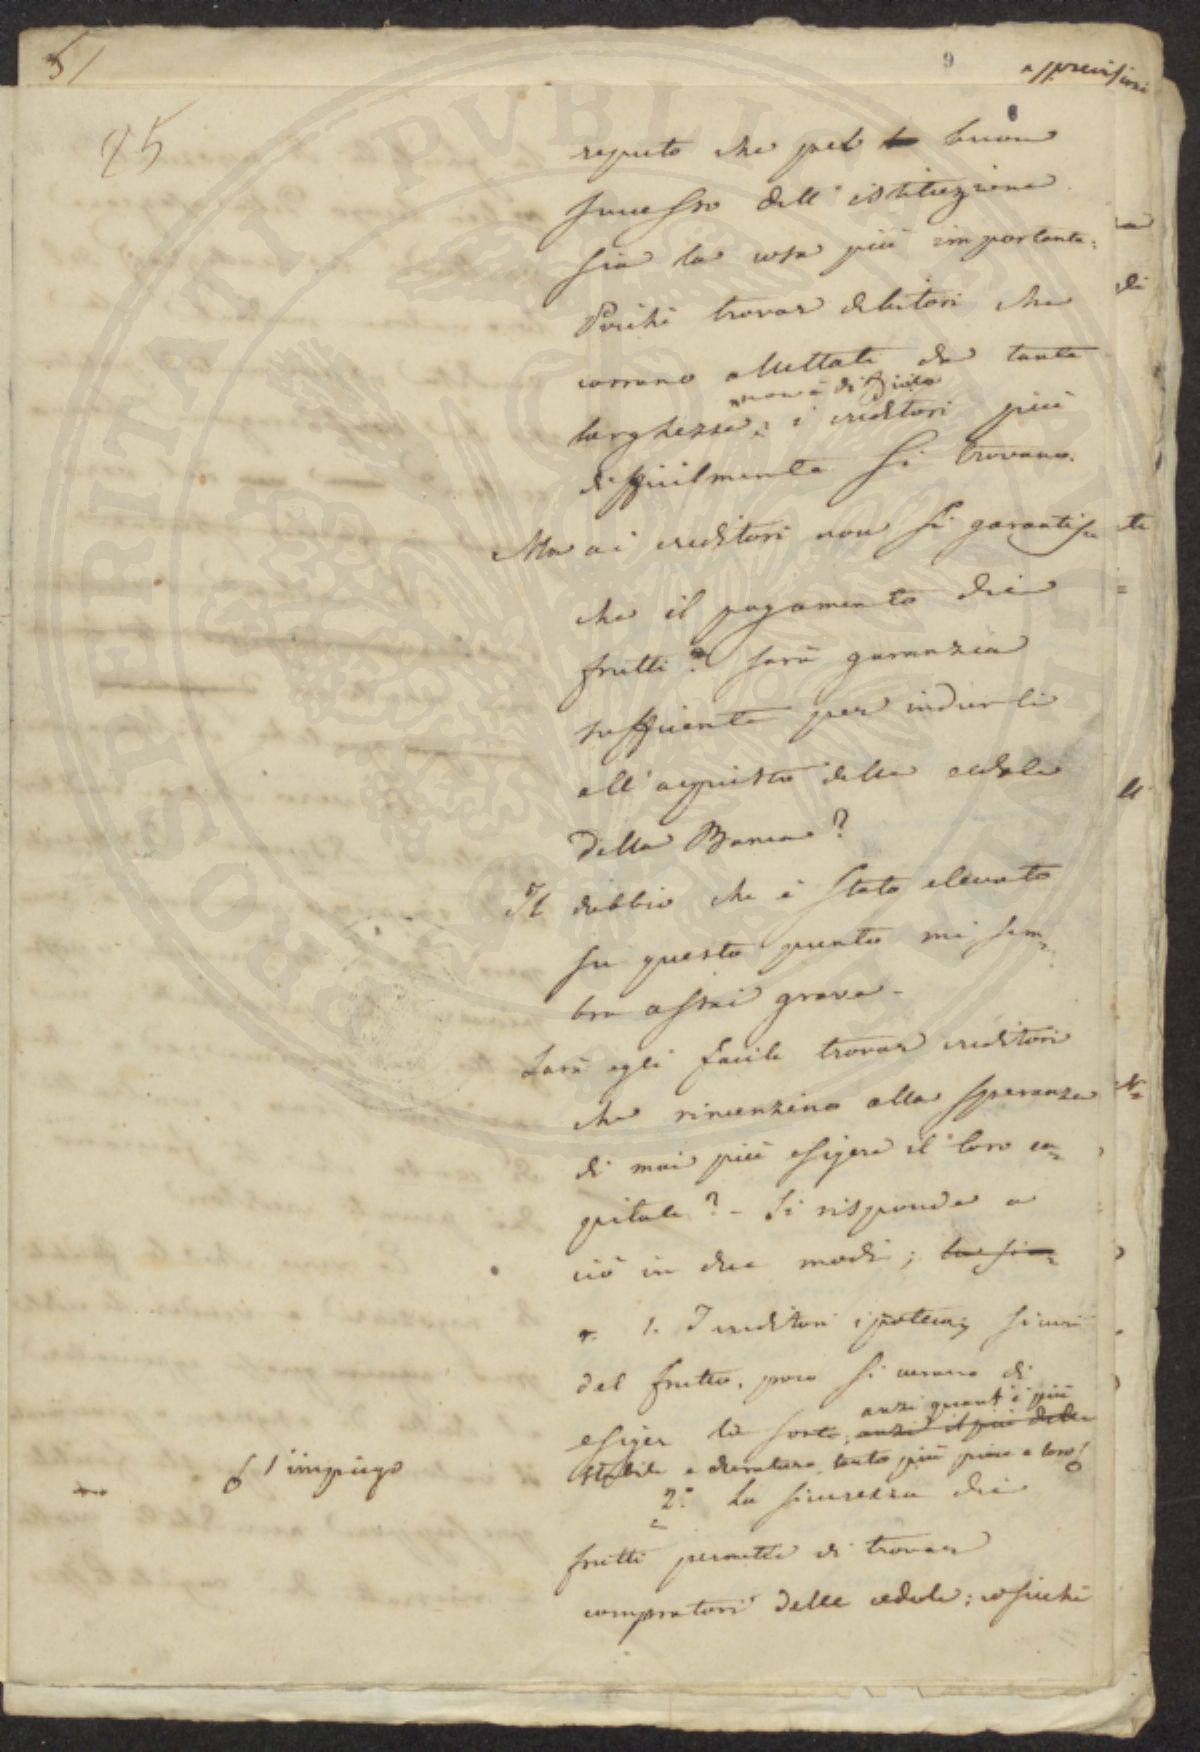 51
9
25
reputo che pel buon
successo dell' istituzione
sia la cosa più importante:
Poiché trovar debitori che
corrano allettati da tante
non è difficile
larghezze; i creditori più
difficilmente si trovano.
Ma ai creditori non si garantisce
che il pagamento dei
frutti? sarà garanzia
sufficiente per indurli
all' acquisto delle cedole
della Banca?
Il dubbio che è stato elevato
su questo punto mi sem=
bra assai grave -
Sarà egli facile trovar creditori
che rinunzino alla speranza
di mai più esigere il loro ca=
pitale? - Si risponde a
ciò in due modi;
1. I creditori ipotecarj sicuri
del frutto, poco si curano di
anzi quant' è più
esiger la sorte; anzi il più delle
l'impiego
stabile e duraturo, tanto più piace a loro!
2.° La sicurezza dei
frutti permette di trovar
compratori delle cedole; cosicché